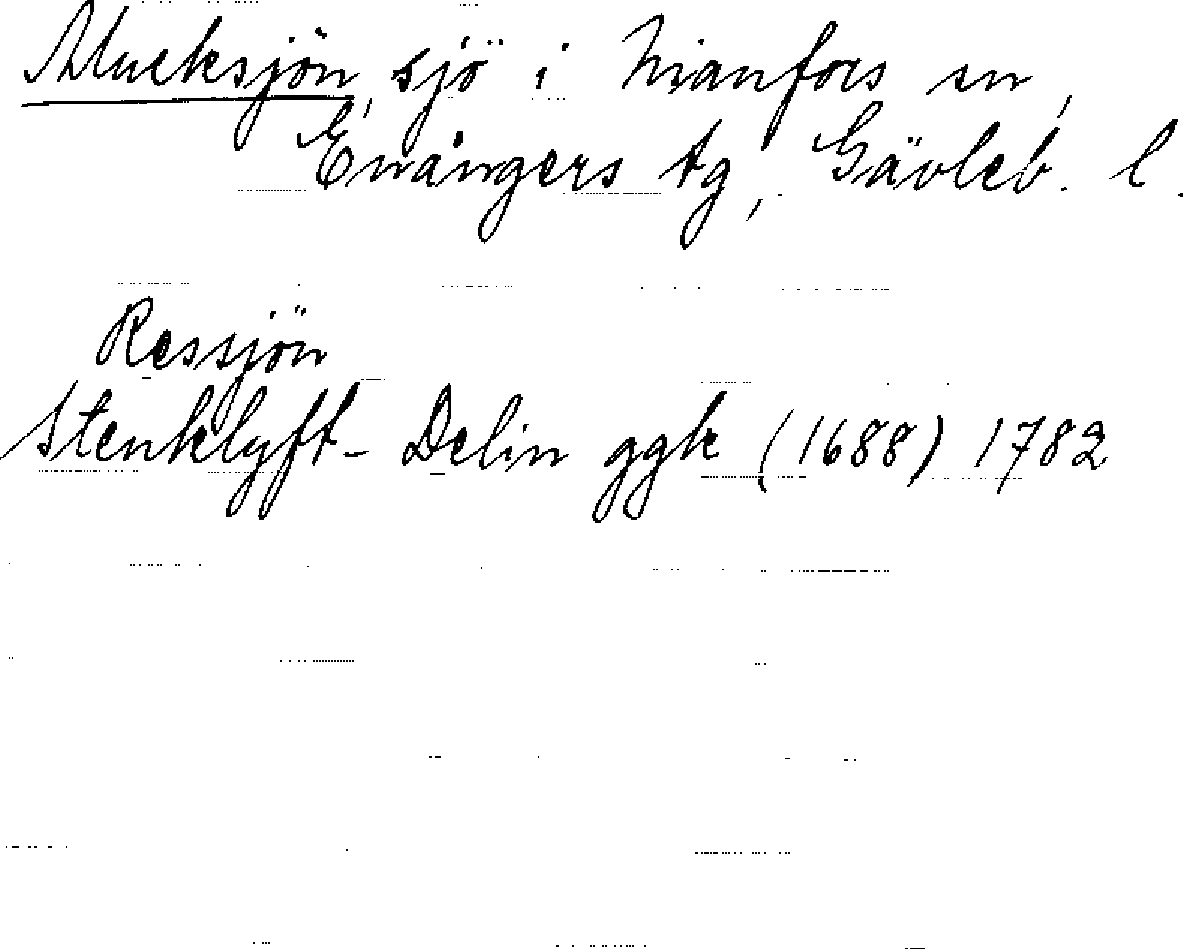 Mucksjön, sjö i Nianfors sn,
Enångers tg, Gävleb. l.
Ressjön
Stenklyft- Delin ggk (1688) 1782